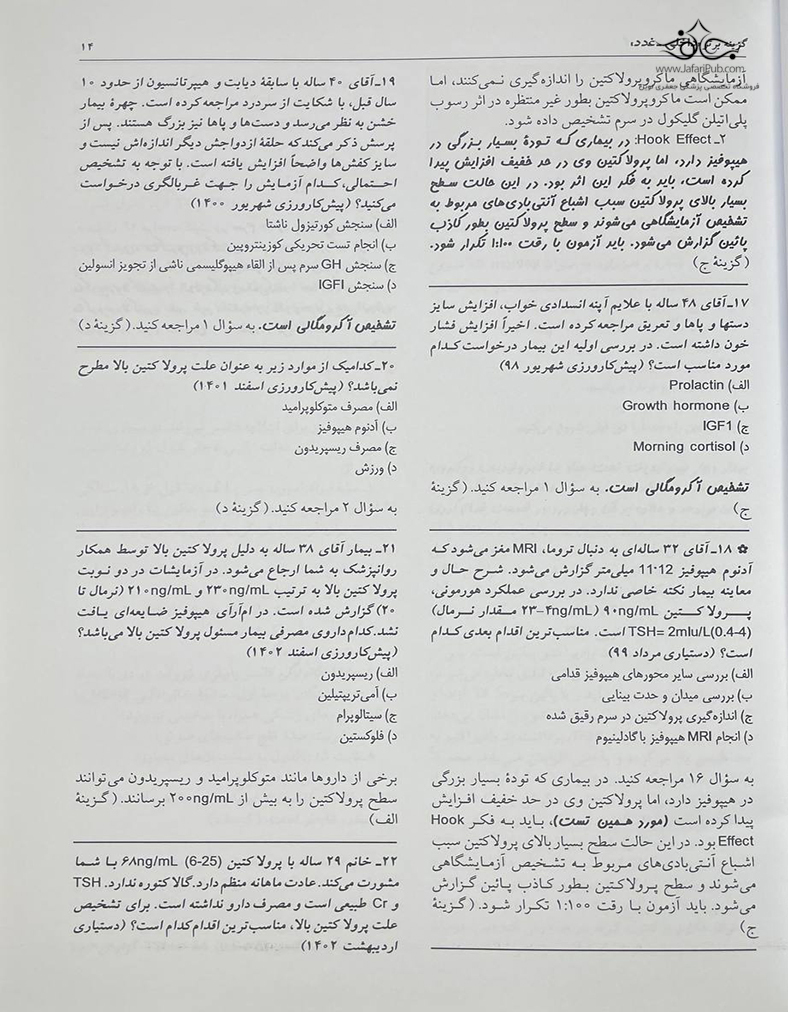 گزینه برتر داخلی ـ غدد،
۱۴
www.JafariPub.com
فروشگاه تخصصی پزشکی جعفری نوین
آزمایشگاهی ماکروپرولاکتین را اندازه‌گیری نمی‌کنند، اما
ممکن است ماکروپرولاکتین بطور غیر منتظره در اثر رسوب
پلی‌اتیلن گلیکول در سرم تشخیص داده شود.
۲ـ Hook Effect: در بیماری که تودهٔ بسیار بزرگی در
هیپوفیز دارد، اما پرولاکتین وی در حد خفیف افزایش پیدا
کرده است، باید به فکر این اثر بود. در این حالت سطح
بسیار بالای پرولاکتین سبب اشباع آنتی‌بادی‌های مربوط به
تشخیص آزمایشگاهی می‌شوند و سطح پرولاکتین بطور کاذب
پائین گزارش می‌شود. باید آزمون با رقت ۱:۱۰۰ تکرار شود.
(گزینهٔ ج)
۱۷ـ آقای ۴۸ ساله با علایم آپنه انسدادی خواب، افزایش سایز
دستها و پاها و تعریق مراجعه کرده است. اخیراً افزایش فشار
خون داشته است. در بررسی اولیه این بیمار درخواست کدام
مورد مناسب است؟ (پیش‌کارورزی شهریور ۹۸)
الف) Prolactin
ب) Growth hormone
ج) IGF1
د) Morning cortisol
تشخیص آکرومگالی است. به سؤال ۱ مراجعه کنید. (گزینهٔ
ج)
✿ ۱۸ـ آقای ۳۲ ساله‌ای به دنبال تروما، MRI مغز می‌شود که
آدنوم هیپوفیز 12*11 میلی‌متر گزارش می‌شود. شرح حال و
معاینه بیمار نکته خاصی ندارد. در بررسی عملکرد هورمونی،
پرولاکتین ۹۰ng/mL (۲۳-۴ng/mL مقدار نرمال)
TSH= 2mIu/L(0.4-4) است. مناسب‌ترین اقدام بعدی کدام
است؟ (دستیاری مرداد ۹۹)
الف) بررسی سایر محورهای هیپوفیز قدامی
ب) بررسی میدان و حدت بینایی
ج) اندازه‌گیری پرولاکتین در سرم رقیق شده
د) انجام MRI هیپوفیز با گادلینیوم
به سؤال ۱۶ مراجعه کنید. در بیماری که تودهٔ بسیار بزرگی
در هیپوفیز دارد، اما پرولاکتین وی در حد خفیف افزایش
پیدا کرده است (مورد همین تست)، باید به فکر Hook
Effect بود. در این حالت سطح بسیار بالای پرولاکتین سبب
اشباع آنتی‌بادی‌های مربوط به تشخیص آزمایشگاهی
می‌شوند و سطح پرولاکتین بطور کاذب پائین گزارش
می‌شود. باید آزمون با رقت ۱:۱۰۰ تکرار شود. (گزینهٔ
ج)
۱۹ـ آقای ۴۰ ساله با سابقهٔ دیابت و هیپرتانسیون از حدود ۱۰
سال قبل، با شکایت از سردرد مراجعه کرده است. چهرهٔ بیمار
خشن به نظر می‌رسد و دست‌ها و پاها نیز بزرگ هستند. پس از
پرسش ذکر می‌کند که حلقهٔ ازدواجش دیگر اندازه‌اش نیست و
سایز کفش‌ها واضحاً افزایش یافته است. با توجه به تشخیص
احتمالی، کدام آزمایش را جهت غربالگری درخواست
می‌کنید؟ (پیش‌کارورزی شهریور ۱۴۰۰)
الف) سنجش کورتیزول ناشتا
ب) انجام تست تحریکی کوزینتروپین
ج) سنجش GH سرم پس از القاء هیپوگلیسمی ناشی از تجویز انسولین
د) سنجش IGFI
تشخیص آکرومگالی است. به سؤال ۱ مراجعه کنید. (گزینهٔ د)
۲۰ـ کدامیک از موارد زیر به عنوان علت پرولاکتین بالا مطرح
نمی‌باشد؟ (پیش‌کارورزی اسفند ۱۴۰۱)
الف) مصرف متوکلوپرامید
ب) آدنوم هیپوفیز
ج) مصرف ریسپریدون
د) ورزش
به سؤال ۲ مراجعه کنید. (گزینهٔ د)
۲۱ـ بیمار آقای ۳۸ ساله به دلیل پرولاکتین بالا توسط همکار
روانپزشک به شما ارجاع می‌شود. در آزمایشات در دو نوبت
پرولاکتین بالا به ترتیب ۲۳۰ng/mL و ۲۱۰ng/mL (نرمال تا
۲۰) گزارش شده است. در ام‌آر‌آی هیپوفیز ضایعه‌ای یافت
نشد. کدام داروی مصرفی بیمار مسئول پرولاکتین بالا می‌باشد؟
(پیش‌کارورزی اسفند ۱۴۰۲)
الف) ریسپریدون
ب) آمی‌تریپتیلین
ج) سیتالوپرام
د) فلوکستین
برخی از داروها مانند متوکلوپرامید و ریسپریدون می‌توانند
سطح پرولاکتین را به بیش از ۲۰۰ng/mL برسانند. (گزینهٔ
الف)
۲۲ـ خانم ۲۹ ساله با پرولاکتین (25-6) ۶۸ng/mL با شما
مشورت می‌کند. عادت ماهانه منظم دارد. گالاکتوره ندارد. TSH
و Cr طبیعی است و مصرف دارو نداشته است. برای تشخیص
علت پرولاکتین بالا، مناسب‌ترین اقدام کدام است؟ (دستیاری
اردیبهشت ۱۴۰۲)